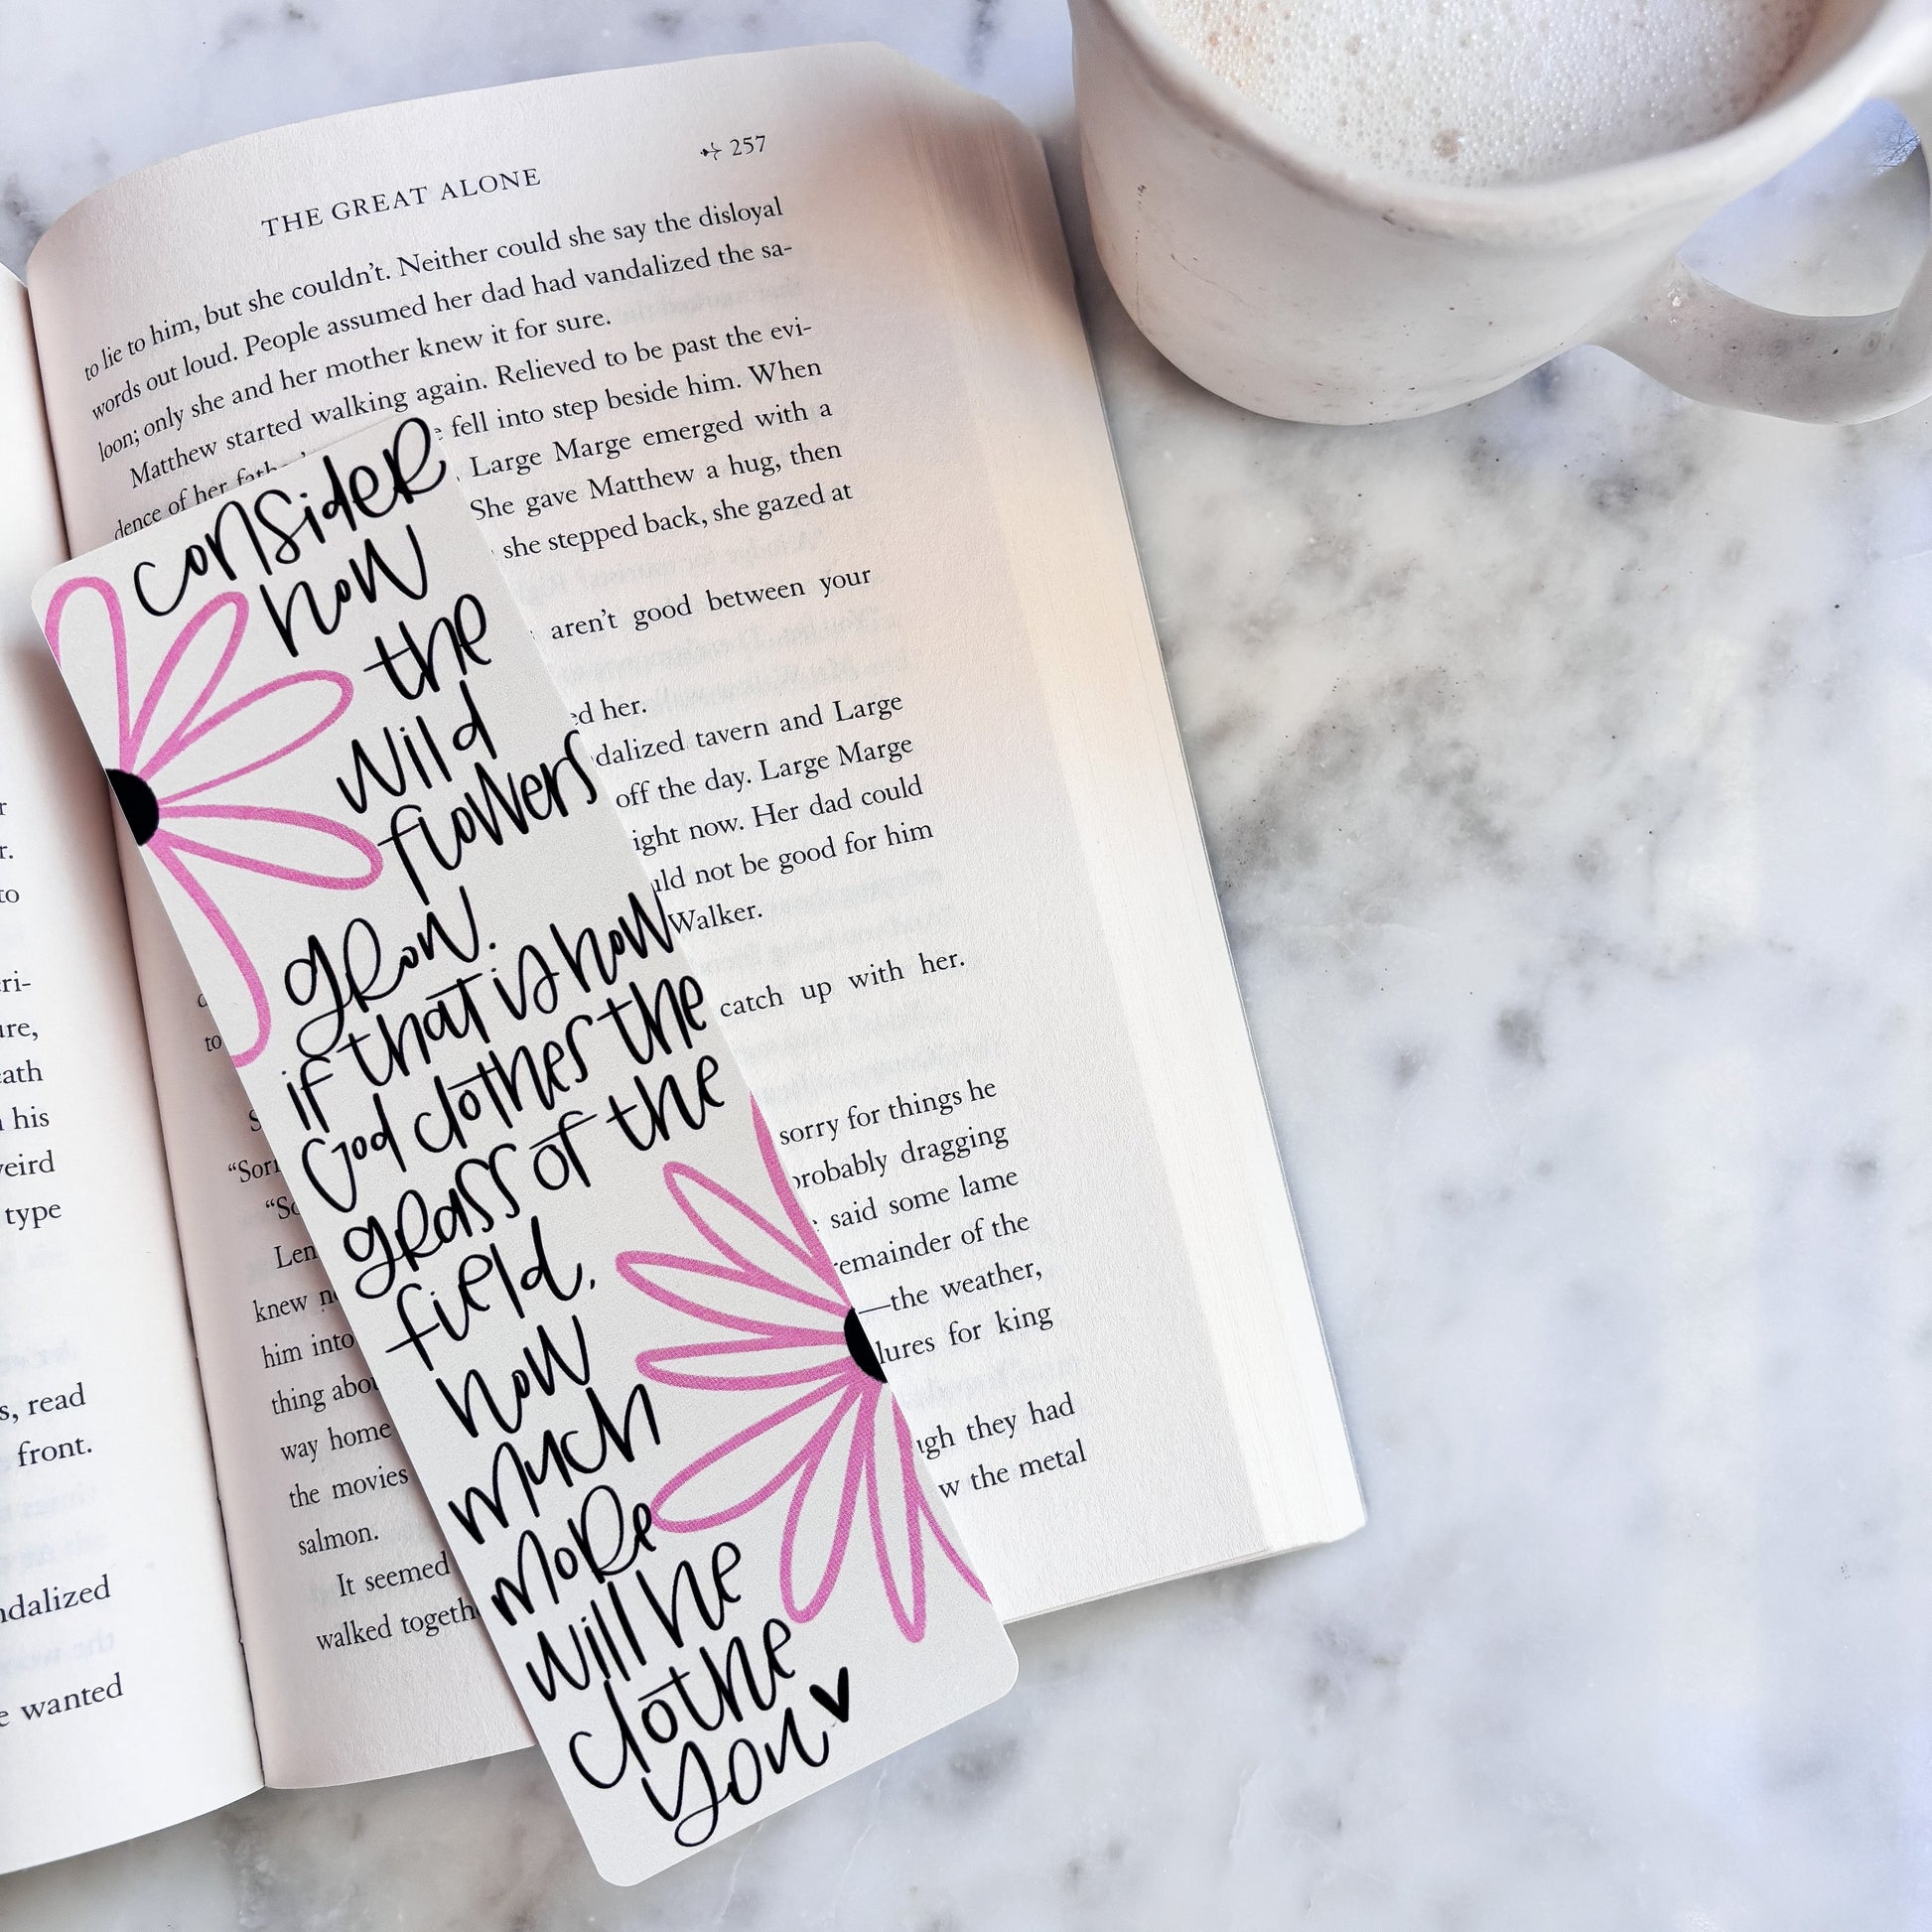 THE GREAT ALONE
257
to lie to him, but she couldn't. Neither could she say the disloyal
words out loud. People assumed her dad had vandalized the sa-
loon; only she and her mother knew it for sure.
Matthew started walking again. Relieved to be past the evi-
dence of her fell into step beside him. When
Large Marge emerged with a
She gave Matthew a hug, then
she stepped back, she gazed at
aren't good between your
her.
tavern and Large
off the day. Large Marge
now. Her dad could
not be good for him
Walker.
catch up with her.
sorry for things he
probably dragging
said some lame
remainder of the
—the weather,
lures for king
they had
the metal
to
"So
Len
knew
him into
thing
way home
the movies
salmon.
It seemed
walked
consider
how
the
wild
flowers
grow.
if that is how
God clothes the
grass of the
field,
how
much
more
will he
clothe
you
to
his
type
read
front.
wanted